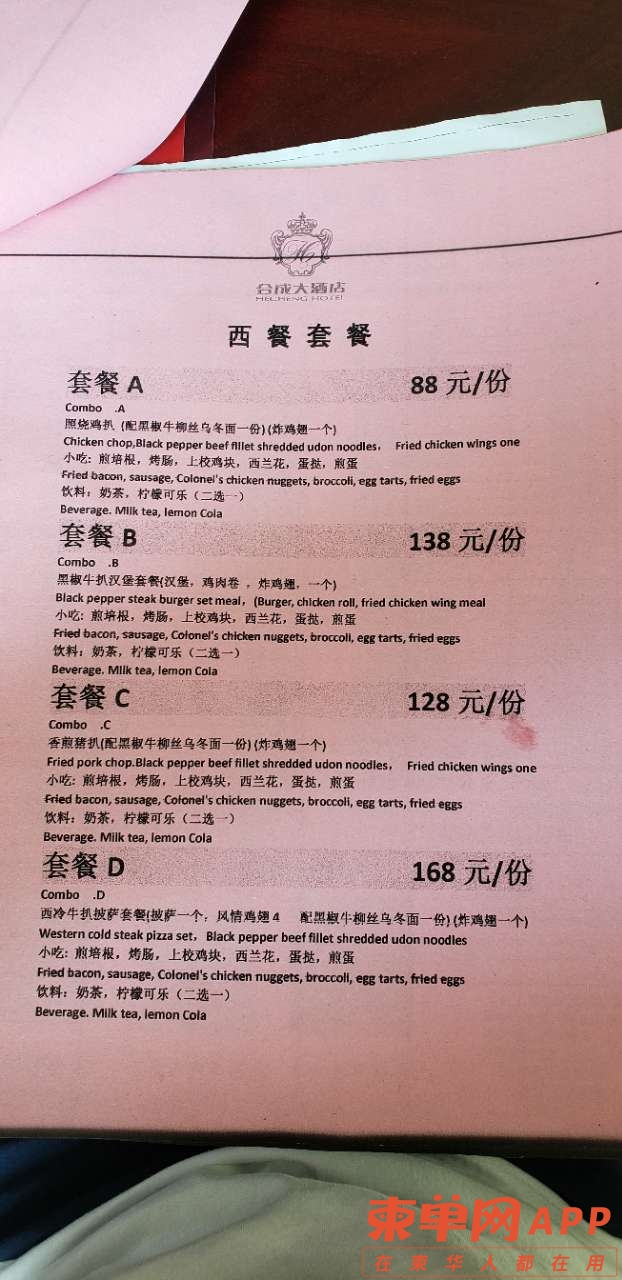 H
合成大酒店
HECHENG HOTEL
西餐套餐
套餐 A 88 元/份
Combo .A
照烧鸡扒 (配黑椒牛柳丝乌冬面一份) (炸鸡翅一个)
Chicken chop,Black pepper beef fillet shredded udon noodles， Fried chicken wings one
小吃: 煎培根，烤肠，上校鸡块，西兰花，蛋挞，煎蛋
Fried bacon, sausage, Colonel's chicken nuggets, broccoli, egg tarts, fried eggs
饮料：奶茶，柠檬可乐（二选一）
Beverage. Milk tea, lemon Cola
套餐 B 138 元/份
Combo .B
黑椒牛扒汉堡套餐(汉堡，鸡肉卷 ，炸鸡翅，一个)
Black pepper steak burger set meal，(Burger, chicken roll, fried chicken wing meal
小吃: 煎培根，烤肠，上校鸡块，西兰花，蛋挞，煎蛋
Fried bacon, sausage, Colonel's chicken nuggets, broccoli, egg tarts, fried eggs
饮料：奶茶，柠檬可乐（二选一）
Beverage. Milk tea, lemon Cola
套餐 C 128 元/份
Combo .C
香煎猪扒(配黑椒牛柳丝乌冬面一份) (炸鸡翅一个)
Fried pork chop.Black pepper beef fillet shredded udon noodles， Fried chicken wings one
小吃: 煎培根，烤肠，上校鸡块，西兰花，蛋挞，煎蛋
Fried bacon, sausage, Colonel's chicken nuggets, broccoli, egg tarts, fried eggs
饮料：奶茶，柠檬可乐（二选一）
Beverage. Milk tea, lemon Cola
套餐 D 168 元/份
Combo .D
西冷牛扒披萨套餐(披萨一个，风情鸡翅 4 配黑椒牛柳丝乌冬面一份) (炸鸡翅一个)
Western cold steak pizza set，Black pepper beef fillet shredded udon noodles
小吃: 煎培根，烤肠，上校鸡块，西兰花，蛋挞，煎蛋
Fried bacon, sausage, Colonel's chicken nuggets, broccoli, egg tarts, fried eggs
饮料：奶茶，柠檬可乐（二选一）
Beverage. Milk tea, lemon Cola
柬单网APP
在柬华人都在用